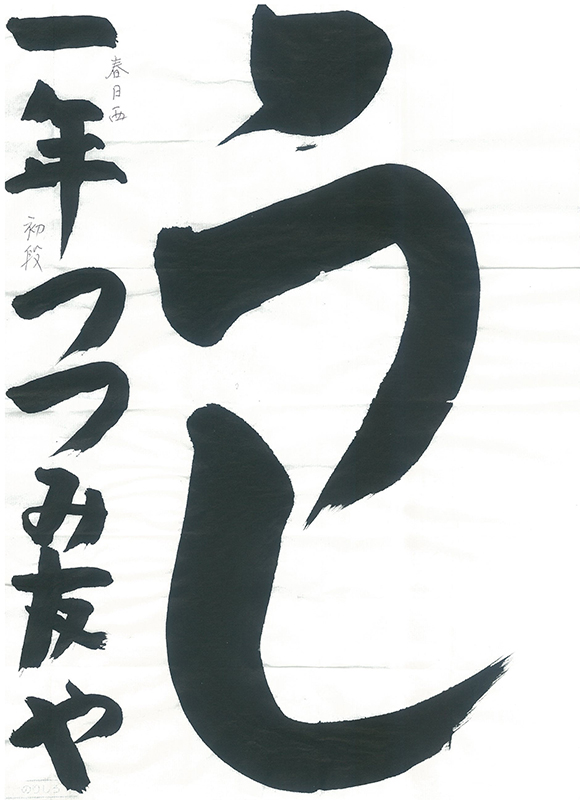 うし
一年つつみ友や
春日西
初段